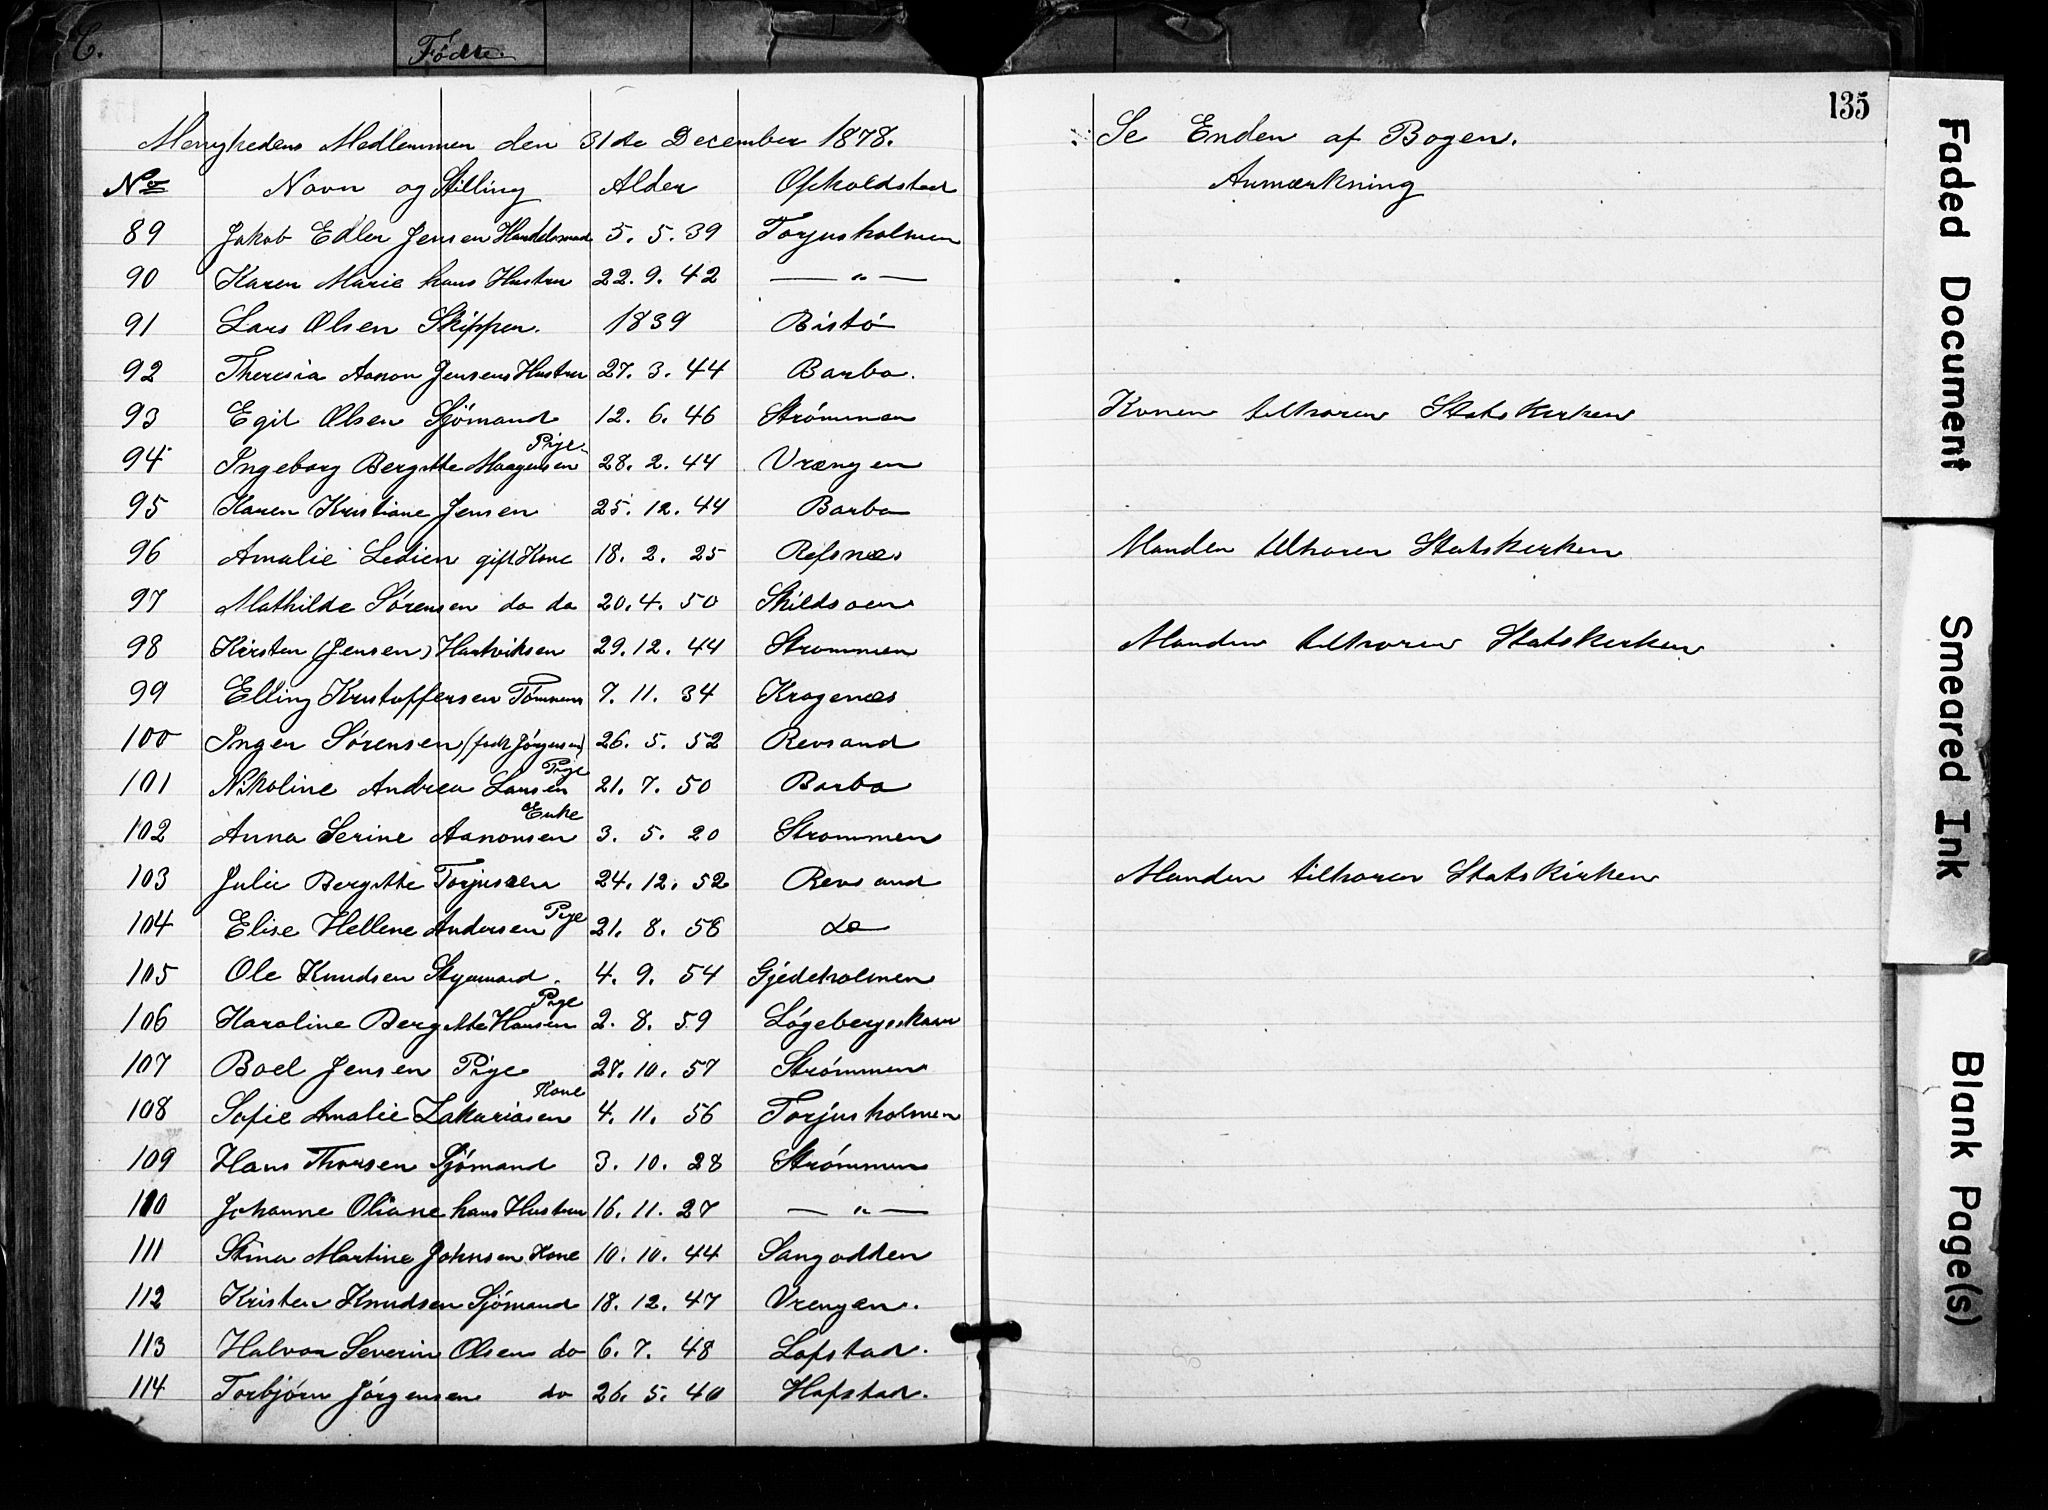 C.
Födte.
135
Menighedens Medlemmer den 31de December 1878.
Se Enden af Bogen.
No Navn og Stilling Alder Opholdstad Anmærkning
89 Jakob Edler Jensen Handelsmand 5. 5. 39 Torjusholmen
90 Karen Marie hans Hustru 22. 9. 42 — " —
91 Lars Olsen Skipper. 1839 Bistö
92 Theresia Aanon Jensens Hustru 27. 3. 44 Barbo.
93 Egil Olsen Sjömand 12. 6. 46 Strömmen Konen tilhører Statskirken
94 Ingeborg Bergitte Maagensen Pige 28. 2. 44 Vrængen
95 Karen Kristiane Jensen 25. 12. 44 Barbo
96 Amalie Ledien gift Kone 18. 2. 25 Refsnæs Manden tilhører Statskirken
97 Mathilde Sörensen do do 20. 4. 50 Skildsoen
98 Kirsten (Jensen) Hartviksen 29. 12. 44 Strommen Manden tilhører Statskirken
99 Elling Kristoffersen Tömmerm 7. 11. 34 Kragenæs
100 Inger Sörensen (født Jörgensen) 26. 5. 52 Revsand
101 Nikoline Andrea Larsen Pige 21. 7. 50 Barbo
102 Anna Serine Aanonsen Enke 3. 5. 20 Strommen
103 Julie Bergitte Torjussen 24. 12. 52 Revsand Manden tilhører Statskirken
104 Elise Hellene Andersen Pige 21. 8. 58 do
105 Ole Knudsen Styrmand. 4. 9. 54 Gjedeholmen
106 Karoline Bergitte Hansen Pige 2. 8. 59 Lögebergskaar
107 Boel Jensen Pige 27. 10. 57 Strömmen
108 Sofie Amalie Zakariasen Kone 4. 11. 56 Torjusholmen
109 Hans Thorsen Sjömand 3. 10. 28 Strömmen
110 Johanne Oliane hans Hustru 16. 11. 27 — " —
111 Stina Martine Johnsen Kone 10. 10. 44 Sangodden
112 Kristen Knudsen Sjömand 18. 12. 47 Vrengen.
113 Halvor Severin Olsen do 6. 7. 48 Lofstad.
114 Torbjörn Jörgensen do 26. 5. 40 Hofstad.
Faded Document
Smeared Ink
Blank Page(s)